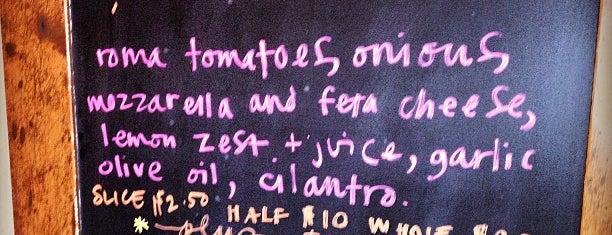 roma tomatoes, onions,
mozzarella and feta cheese,
lemon zest + juice, garlic
olive oil, cilantro.
SLICE $2.50 HALF $10 WHOLE
* plus